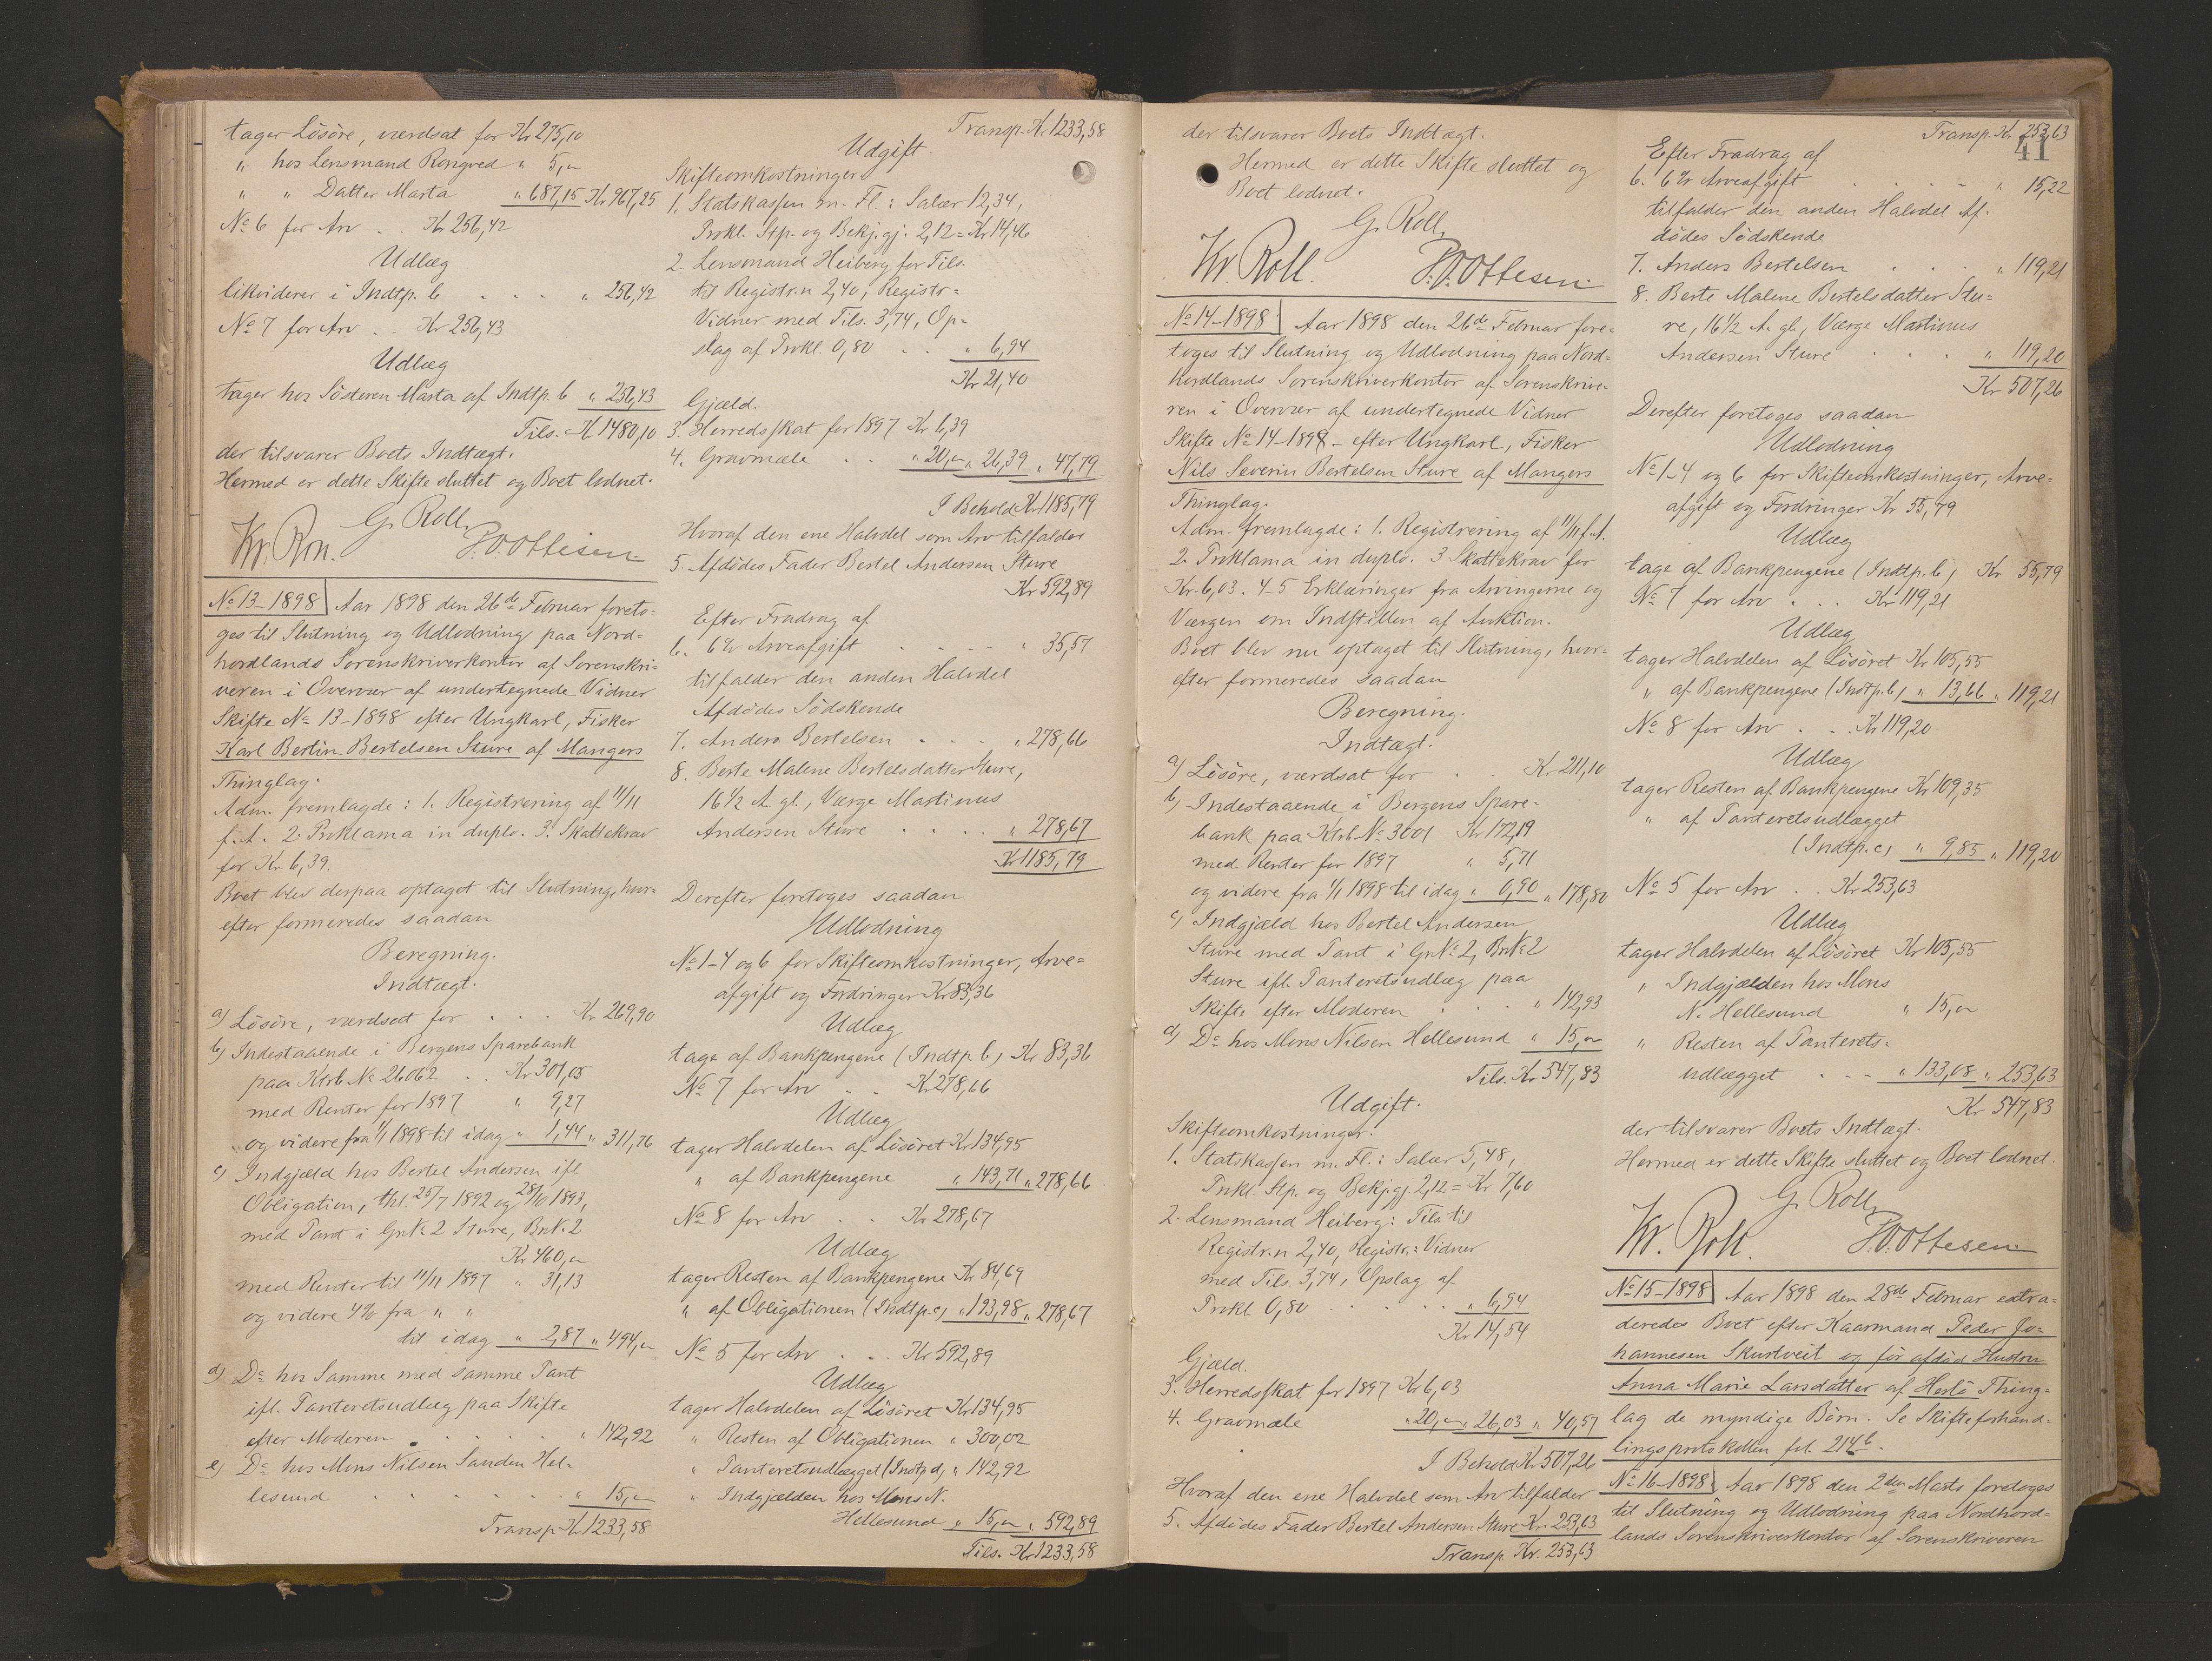 tager Lösöre, værdsat for Kr 275,10
" hos Lensmand Rongved " 5,"
" " Datter Marta " 687,15 Kr 967,25
No 6 for Arv . . Kr 256,42
Udlæg
likviderer i Indtp. b . . . " 256,42
No 7 for Arv . . Kr 256,43
Udlæg
tager hos Södteren Marta af Indtp. b " 256,43
Tils. Kr 1480,10
der tilsvarer Boets Indtægt.
Hermed er dette Skifte sluttet og Boet lodnet.
G. Roll
Kr. Roll. P.O. Ottesen
No 13-1898 Aar 1898 den 26de Februar foreto-
ges til Slutning og Udlodning paa Nord-
hordlands Sorenskriverkontor af Sorenskri-
veren i Overvær af undertegnede Vidner
Skifte No 13-1898 efter Ungkarl, Fisker
Karl Bertin Bertelsen Sture af Mangers
Thinglag.
Adm. fremlagde: 1. Registrering af 11/11
f. A. 2. Proklama in duplo. 3. Skattekrav
for Kr. 6,39.
Boet blev derpaa optaget til Slutning, hvor-
efter formeredes saadan
Beregning.
Indtægt.
a) Lösöre, værdsat for . . . Kr 269,90
b) Indestaaende i Bergens Sparebank
paa Ktrb. No 26062 . . Kr 301,05
med Renter for 1897 " 9,27
og videre fra 1/1 1898 til idag " 1,44 " 311,76
c) Indgjæld hos Bertel Andersen ifl
Obligation, thl. 25/7 1892 og 28/10 1893,
med Pant i GrNo 2 Sture, BrNo 2
Kr 460,"
med Renter til 11/11 1897 " 31,13
og videre 4% fra " "
til idag " 2,87 " 494,"
d) Do hos Samme med samme Pant
ifl. Panteretsudlæg paa Skifte
efter Moderen . . . . " 142,92
e) Do hos Mons Nilsen Sanden Hel-
lesund . . . . . " 15,"
Transp Kr 1233,58
Transp. Kr. 1233,58
Udgift.
Skifteomkostninger
1. Statskassen m. Fl.: Salær 12,34,
Prokl. Stp. og Bekj.gj. 2,12 = Kr 14,46
2. Lensmand Heiberg for Tils.
til Registr.n 2,40, Registr-
Vidner med Tils. 3,74, Op-
slag af Prokl. 0,80 . . " 6,94
Kr 21,40
Gjæld.
3. Herredsskat for 1897 Kr 6,39
4. Gravmæle . . " 20," " 26,39 " 47,79
I Behold Kr 1185,79
Hvoraf den ene Halvdel som Arv tilfalder
5. Afdödes Fader Bertel Andersen Sture
Kr 592,89
Efter Fradrag af
6. 6% Arveafgift . . . . " 35,57
tilfalder den anden Halvdel
Afdödes Södskende
7. Anders Bertelsen . . . " 278,66
8. Berte Malene Bertelsdatter Sture,
16 1/2 A. gl., Værge Martinus
Andersen Sture . . . . " 278,67
Kr 1185,79
Derefter foretoges saadan
Udlodning
No 1-4 og 6 for Skifteomkostninger, Arve-
afgift og Fordringer Kr 83,36
Udlæg
tage af Bankpengene (Indtp. b) Kr 83,36
No 7 for Arv . Kr 278,66
Udlæg
tager Halvdelen af Lösöret Kr 134,95
" af Bankpengene " 143,71 " 278,66
No 8 for Arv . . Kr 278,67
Udlæg
tager Resten af Bankpengene Kr 84,69
" af Obligationen (Indtp. c) " 193,98 " 278,67
No 5 for Arv . . . Kr 592,89
Udlæg
tager Halvdelen af Lösöret Kr 134,95
" Resten af Obligationen " 300,02
" Panteretsudlægget (Indtp. d) " 142,92
" Indgjælden hos Mons N.
Hellesund " 15," " 592,89
Tils. Kr 1233,58
der tilsvarer Boets Indtægt.
Hermed er dette Skifte sluttet og
Boet lodnet.
G. Roll
Kr. Roll. P.O. Ottesen.
No 14-1898 Aar 1898 den 26de Februar fore-
toges til Slutning og Udlodning paa Nord-
hordlands Sorenskriverkontor af Sorenskrive-
ren i Overvær af undertegnede Vidner
Skifte No 14-1898 - efter Ungkarl, Fisker
Nils Severin Bertelsen Sture af Mangers
Thinglag.
Adm. fremlagde: 1. Registrering af 11/11 f. A.
2. Proklama in duplo. 3 Skattekrav for
Kr. 6,03. 4-5 Erklæringer fra Arvingerne og
Værgen om Indstillen af Auktion.
Boet blev nu optaget til Slutning, hvor-
efter formeredes saadan
Beregning.
Indtægt.
a) Lösöre, værdsat for . . Kr 211,10
b) Indestaaende i Bergens Spare-
bank paa Ktrb. No 3001 Kr 172,19
med Renter for 1897 " 5,71
og videre fra 1/1 1898 til idag " 0,90 " 178,80
c) Indgjæld hos Bertel Andersen
Sture med Pant i GrNo 2, BrNo 2
Sture ifl. Panteretsudlæg paa
Skifte efter Moderen . . . " 142,93
d) Do hos Mons Nilsen Hellesund " 15,"
Tils. Kr 547,83
Udgift.
Skifteomkostninger.
1. Statskassen m. Fl.: Salær 5,48,
Prokl. Stp. og Bekj.gj. 2,12 = Kr 7,60
2. Lensmand Heiberg: Tils til
Registr.n 2,40, Registr.-Vidner
med Tils. 3,74, Opslag af
Prokl. 0,80 . . . . . " 6,94
Kr 14,54
Gjæld.
3. Herredsskat for 1897 Kr 6,03
4. Gravmæle " 20," " 26,03 " 40,57
I Behold Kr. 507,26
Hvoraf den ene Halvdel som Arv tilfalder
5. Afdödes Fader Bertel Andersen Sture Kr. 253,63
Transp. Kr. 253,63
Transp. Kr. 253,63
41
Efter Fradrag af
6. 6% Arveafgift . . . . " 15,22
tilfalder den anden Halvdel Af-
dödes Södskende
7. Anders Bertelsen . . . " 119,21
8. Berte Malene Bertelsdatter Stu-
re, 16 1/2 A. gl., Værge Martinus
Andersen Sture . . . " 119,20
Kr 507,26
Derefter foretoges saadan
Udlodning
No 1-4 og 6 for Skifteomkostninger, Arve-
afgift og Fordringer Kr 55,79
Udlæg
tage af Bankpengene (Indtp. b) Kr 55,79
No 7 for Arv . . . Kr 119,21
Udlæg
tager Halvdelen af Lösöret Kr 105,55
" af Bankpengene (Indtp. b) " 13,66 " 119,21
No 8 for Arv . . . Kr 119,20
Udlæg
tager Resten af Bankpengene Kr 109,35
" af Panteretsudlægget
(Indtp. c) " 9,85 " 119,20
No 5 for Arv . . Kr 253,63
Udlæg
tager Halvdelen af Lösöret Kr 105,55
" Indgjælden hos Mons
N. Hellesund " 15,"
" Resten af Panterets-
udlægget . . . " 133,08 " 253,63
Kr 547,83
der tilsvarer Boets Indtægt.
Hermed er dette Skifte sluttet og Boet lodnet.
G. Roll
Kr. Roll. P.O. Ottesen
No 15-1898 Aar 1898 den 28de Februar extra-
deredes Boet efter Kaarmand Peder Jo-
hannesen Skurtveit og för afdöd Hustru
Anna Marie Larsdatter af Herlö Thing-
lag de myndige Börn. Se Skifteforhand-
lingsprotokollen fol. 214b.
No 16-1898 Aar 1898 den 2den Marts foretoges
til Slutning og Udlodning paa Nordhord-
lands Sorenskriverkontor af Sorenskriveren